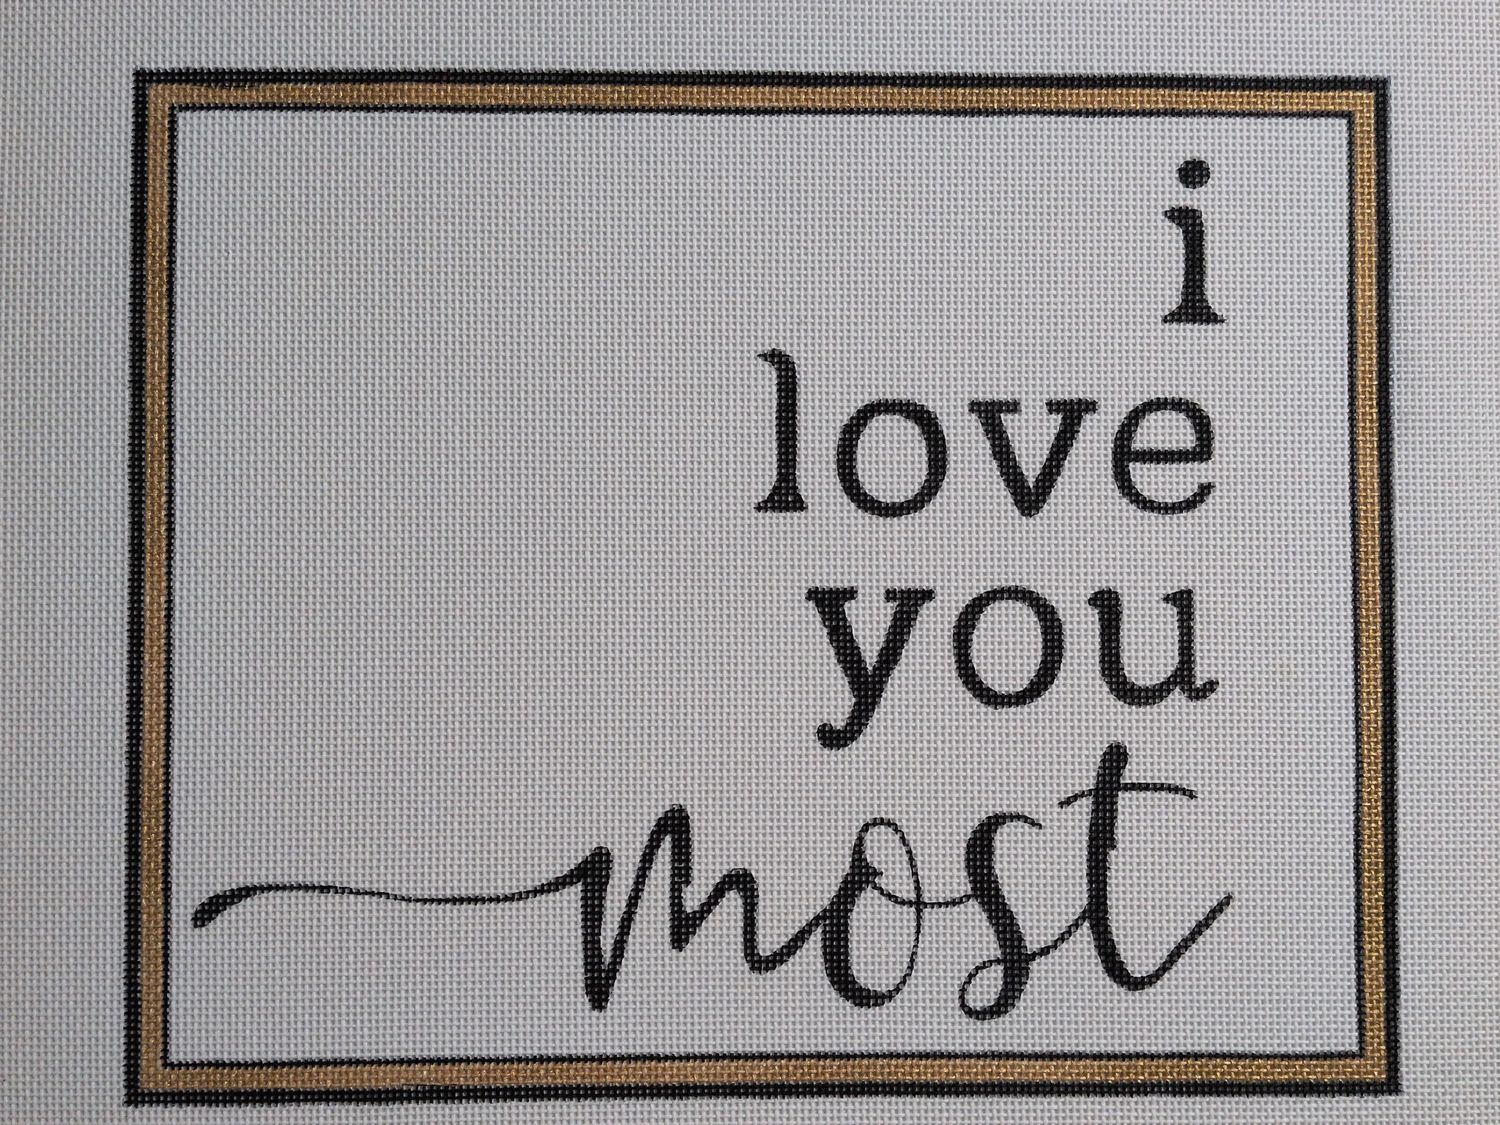 i
love
you
most